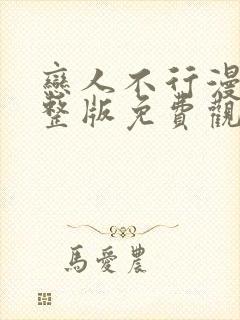 戀人不行漫
整版免費觀
馬愛農